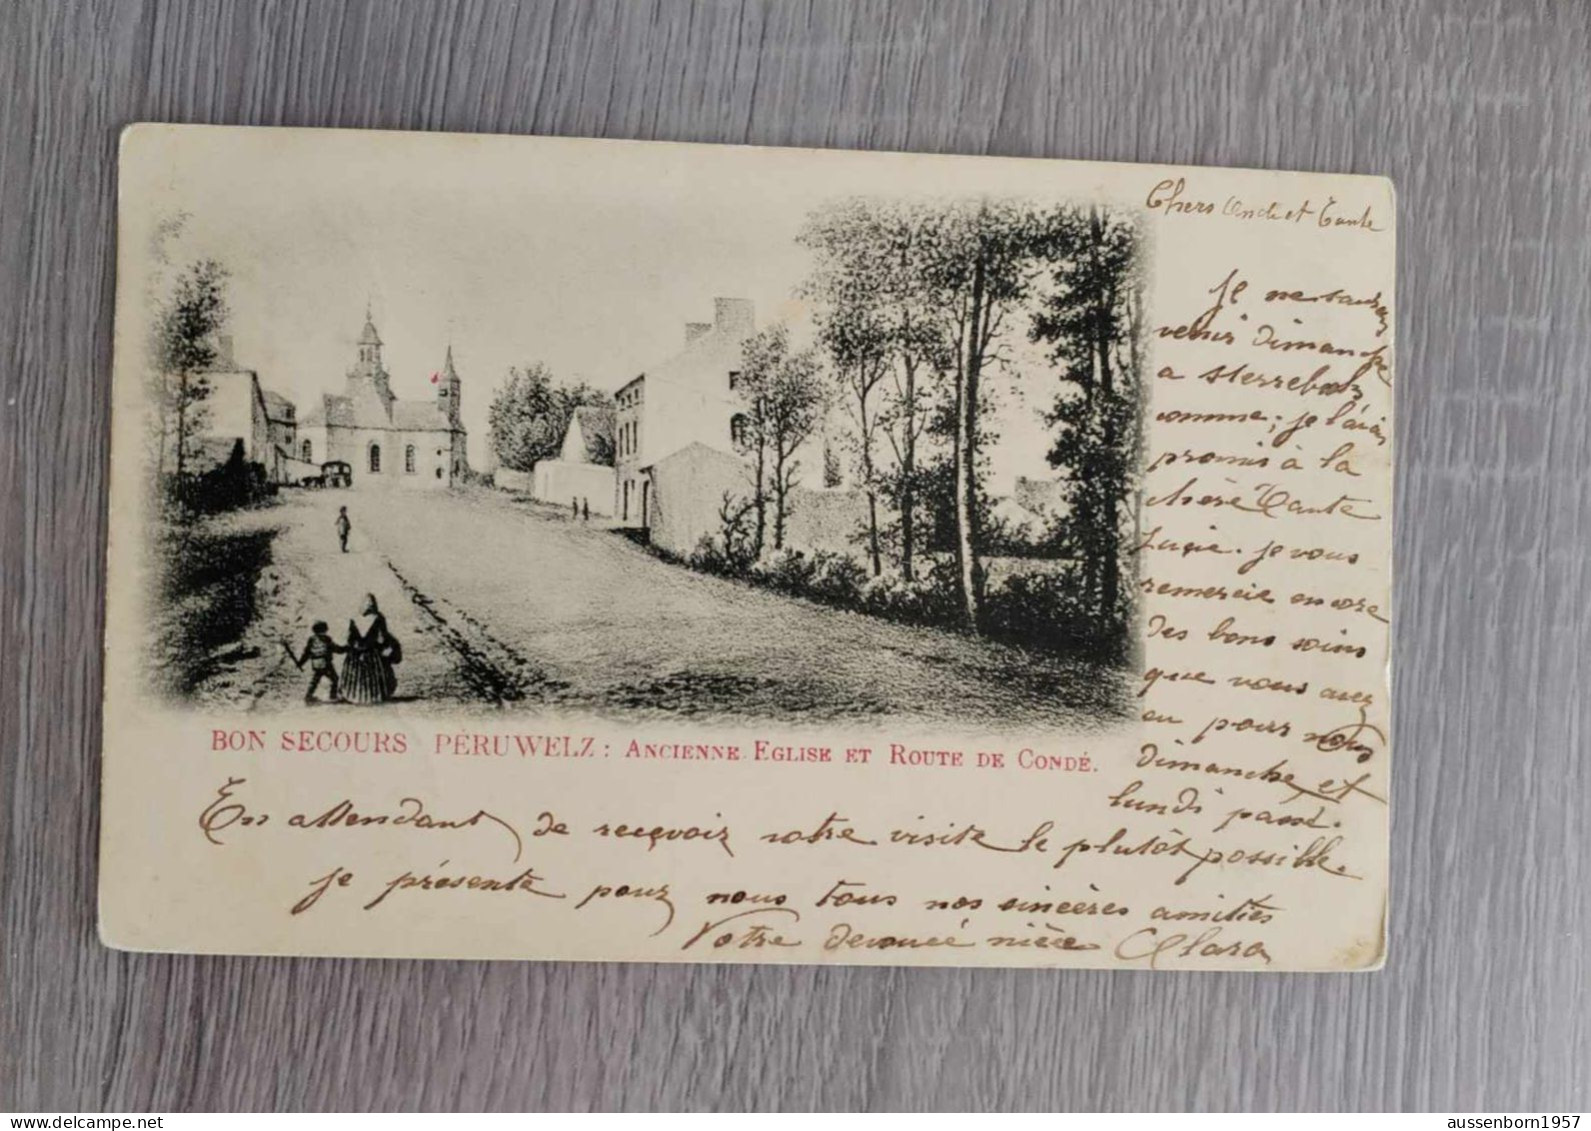 Chers Oncle et Tante
Je ne saurais
venir Dimanche
a Sterrebeek
comme, je l'avais
promis à la
chère Tante
Lucie. je vous
remercie encore
des bons soins
que vous avez
eu pour nous
dimanche et
lundi passé.
BON SECOURS PÉRUWELZ : ANCIENNE EGLISE ET ROUTE DE CONDÉ.
En attendant de reçevoir votre visite le plutôt possible.
je présente pour nous tous nos sincères amitiés
Votre devouée nièce Clara
aussenborn1957